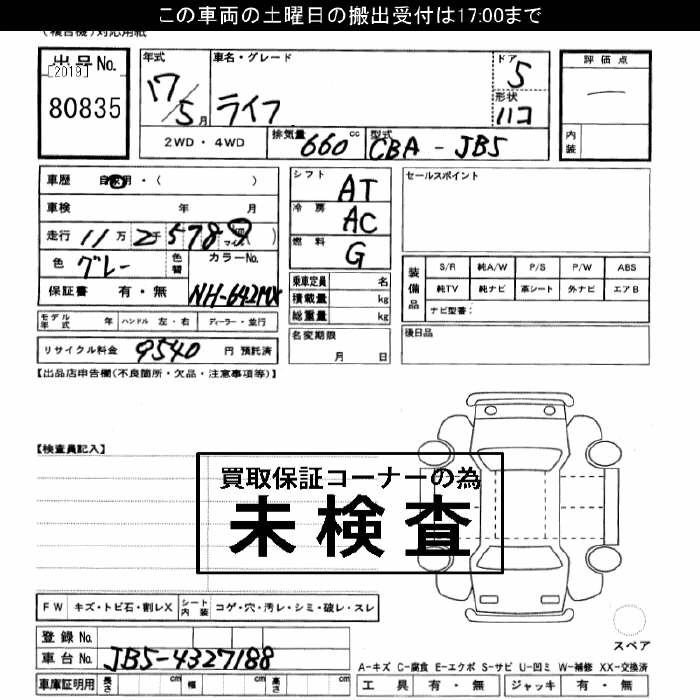 この車両の土曜日の搬出受付は17:00まで
(複合機)対応用紙
出品No.
[2019]
80835
年式 17/5月
車名・グレード ライフ
ドア 5
形状 ハコ
2WD・4WD
排気量 660 cc
型式 CBA-JB5
評価点 —
内装
車歴 自家用・( )
車検 年 月
走行 11万2千578 km マイル( )
色 グレー 色替 カラーNo. NH-642MX
保証書 有・無
モデル年式 年 ハンドル 左・右 ディーラー・並行
リサイクル料金 9540 円 預託済
シフト AT
冷房 AC
燃料 G
乗車定員 名
積載量 kg
総重量 kg
名変期限
月 日
セールスポイント
装備品 S/R 純A/W P/S P/W ABS
純TV 純ナビ 革シート 外ナビ エアB
ナビ型番:
後日品
【出品店申告欄(不良箇所・欠品・注意事項等)】
【検査員記入】
買取保証コーナーの為
未検査
FW キズ・トビ石・割レX シート内装 コゲ・穴・汚レ・シミ・破レ・スレ
登録No.
車台No. JB5-4327188
車庫証明用 長さ cm 幅 cm 高さ cm
スペア
A-キズ C-腐食 E-エクボ S-サビ U-凹ミ W-補修 XX-交換済
工具 有・無 ジャッキ 有・無